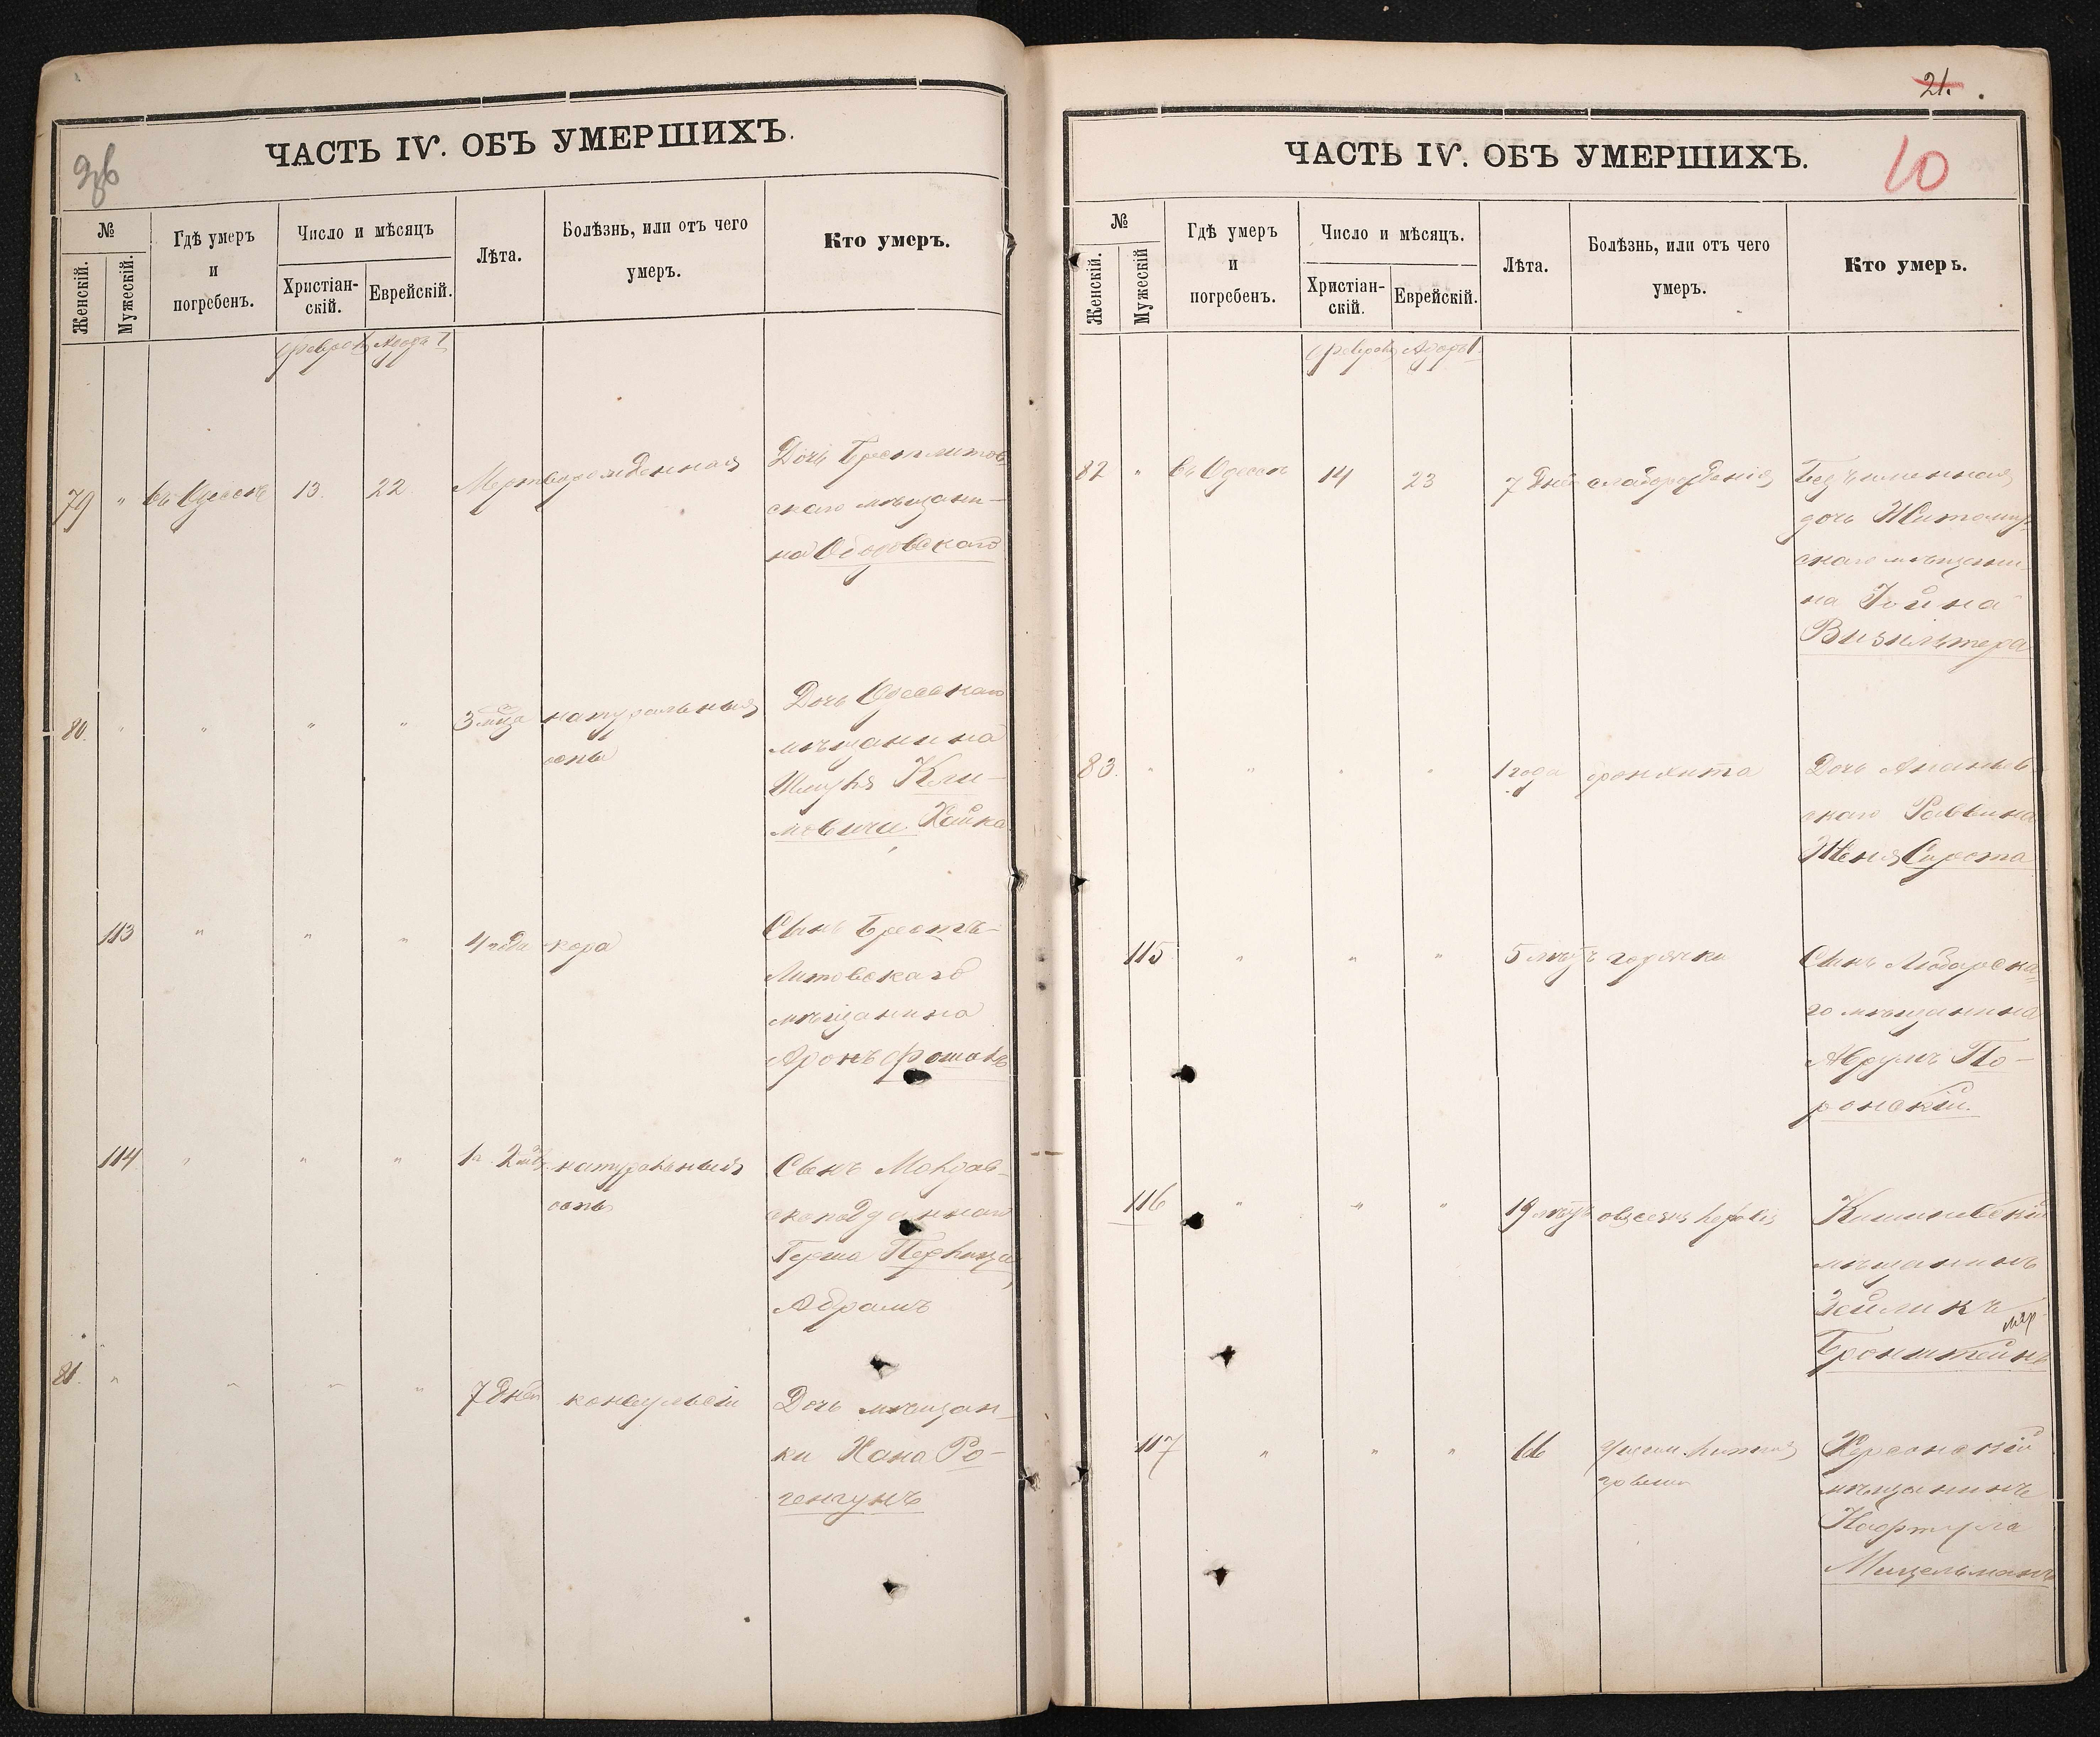 ЧАСТЬ IV. ОБЪ УМЕРШИХЪ.
№
Женскій.
Мужескій.
Гдѣ умеръ
и
погребенъ.
Число и мѣсяцъ
Христіан-
скій.
Еврейскій.
Лѣта.
Болѣзнь, или отъ чего
умеръ.
Кто умеръ.
79 " въ Одессѣ 13. 22 Мертворожденная
Дочь Брестлитов-
скаго мѣщани-
на
80. " " " " 3 натуральныя
оспы
Дочь Одесскаго
мѣщанина
Кли-
мовича Хайка
113 " " " 4 года кора
Сынъ Брестъ-
Литовскаго
мѣщанина
Аронъ
114 " " " 1 г. 2 натуральныя
оспы
Сынъ Молдав-
скоподданнаго
Герша
Абрамъ
81. " " " " 7 дней конвульсіи
Дочь мѣщан-
ки Хана Ро-
генгунъ
21.
ЧАСТЬ IV. ОБЪ УМЕРШИХЪ.
10
№
Женскій.
Мужескій
Гдѣ умеръ
и
погребенъ.
Число и мѣсяцъ.
Христіан-
скій.
Еврейскій.
Лѣта.
Болѣзнь, или отъ чего
умеръ.
Кто умеръ.
82 " въ Одессѣ 14 23 7 дней слаборожденія
Безъименная
дочь Житомир-
скаго мѣщани-
на Іойна
Визильтера
83. " " " " 1 года бронхита
Дочь Ананьев-
скаго Раввина
Женя Сирота
115 " " " 5 горячки
Сынъ Любарска-
го мѣщанина
Аврумъ По-
ронскій.
116 " " " 19
Кишиневскій
мѣщанинъ
Зейликъ
Бронштейнъ
117 " " " 66
Херсонскій
мѣщанинъ
Нафтула
Мицельманъ